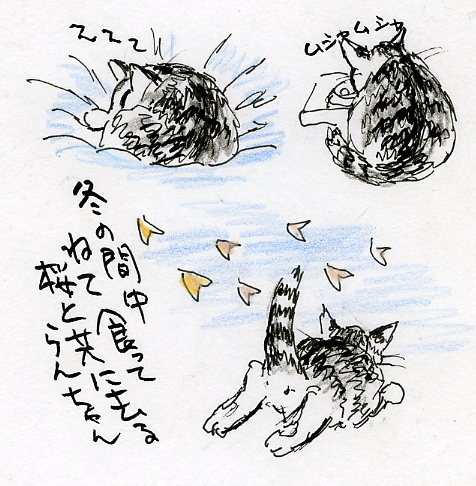 ZZZ
ムシャムシャ
冬の間中食って
ねて
桜と共に
らんちゃん